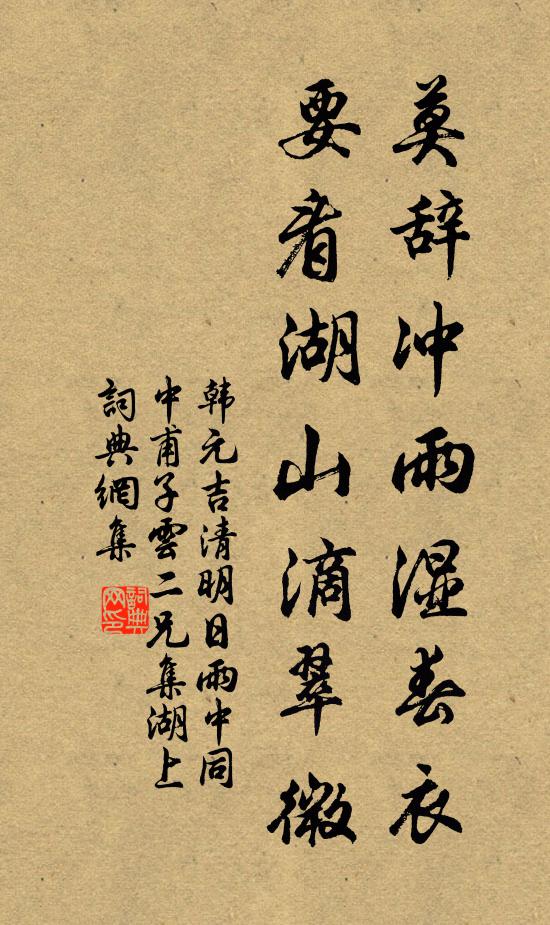 莫辞冲雨湿春衣
要看湖山滴翠微
韩元吉清明日雨中同
中甫子雲二兄集湖上
詞典網集
詞典網印